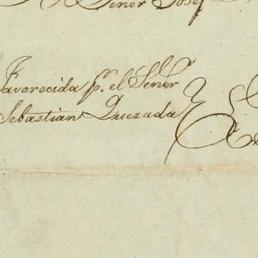 Señor Josef
Favorecida pr. el Señor
Sebastian Quezada